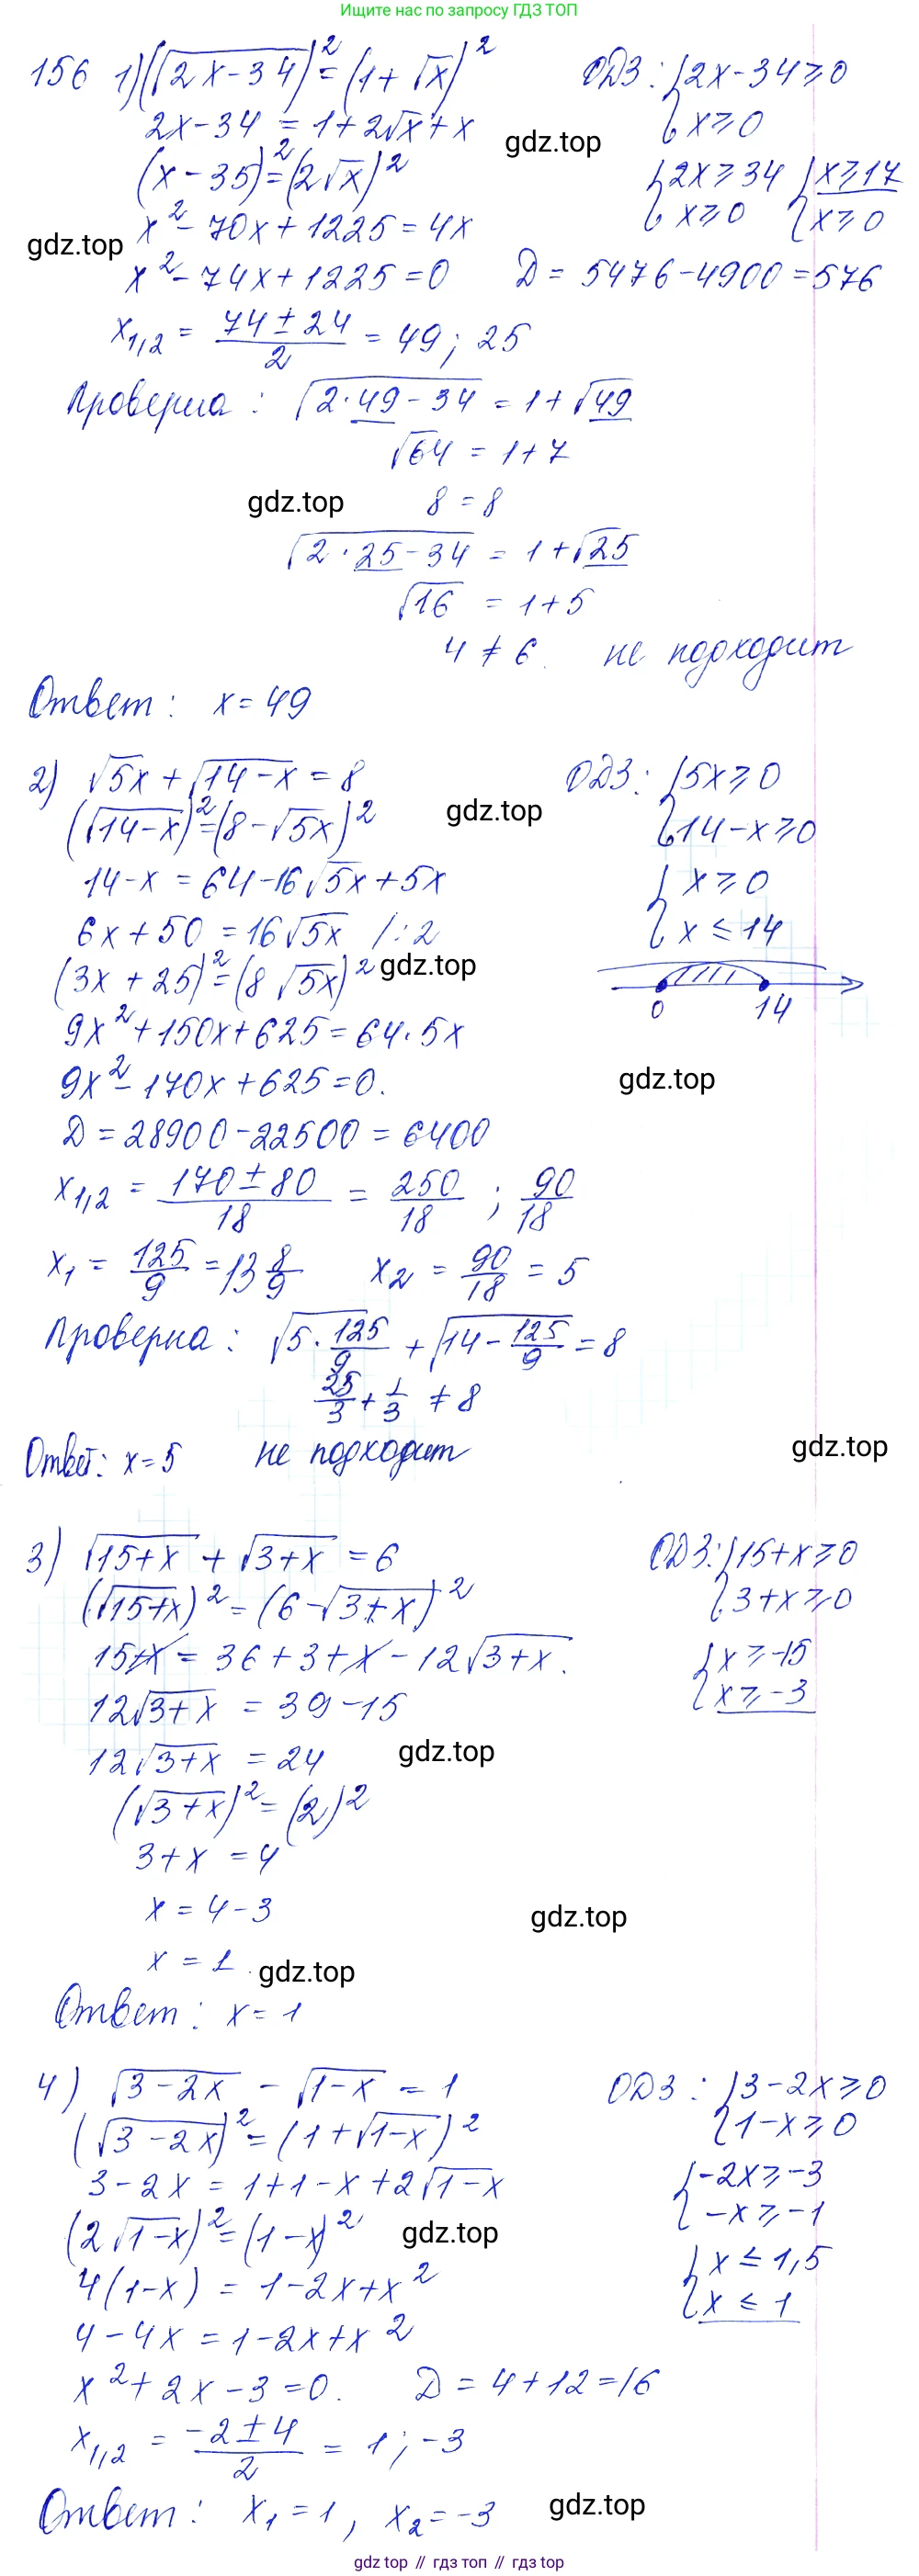 Ищите нас по запросу ГДЗ ТОП
156 1) (√(2x-34))² = (1+√x)² ОДЗ: {2x-34≥0
2x-34 = 1+2√x+x {x≥0
gdz.top
(x-35)² = (2√x)² {2x≥34 {x≥17
{x≥0 {x≥0
gdz.top
x²-70x+1225=4x
x²-74x+1225=0 D = 5476-4900=576
x₁,₂ = (74±24)/2 = 49; 25
Проверка: √(2·49-34) = 1+√49
√64 = 1+7
gdz.top
8 = 8
√(2·25-34) = 1+√25
√16 = 1+5
4 ≠ 6 не подходит
Ответ: x=49
2) √5x + √(14-x) = 8 ОДЗ: {5x≥0
(√(14-x))² = (8-√5x)² {14-x≥0
gdz.top
14-x = 64-16√5x+5x {x≥0
6x+50 = 16√5x /:2 {x≤14
(3x+25)² = (8√5x)²
gdz.top
0 14
9x²+150x+625=64·5x
9x²-170x+625=0.
gdz.top
D = 28900-22500=6400
x₁,₂ = (170±80)/18 = 250/18 ; 90/18
x₁ = 125/9 = 13 8/9 x₂ = 90/18 = 5
Проверка: √(5·125/9) + √(14-125/9) = 8
25/3 + 1/3 ≠ 8
Ответ: x=5 не подходит
gdz.top
3) √(15+x) + √(3+x) = 6 ОДЗ: {15+x≥0
(√(15+x))² = (6-√(3+x))² {3+x≥0
15+x = 36+3+x-12√(3+x). {x≥-15
12√(3+x) = 39-15 {x≥-3
12√(3+x) = 24
gdz.top
(√(3+x))² = (2)²
3+x = 4
x = 4-3
gdz.top
x = 1.
gdz.top
Ответ: x=1
4) √(3-2x) - √(1-x) = 1 ОДЗ: {3-2x≥0
(√(3-2x))² = (1+√(1-x))² {1-x≥0
3-2x = 1+1-x+2√(1-x) {-2x≥-3
(2√(1-x))² = (1-x)² {-x≥-1
gdz.top
4(1-x) = 1-2x+x² {x≤1,5
4-4x = 1-2x+x² {x≤1
x²+2x-3=0. D = 4+12=16
x₁,₂ = (-2±4)/2 = 1; -3
Ответ: x₁=1, x₂=-3
gdz.top
gdz top // гдз топ // гдз top